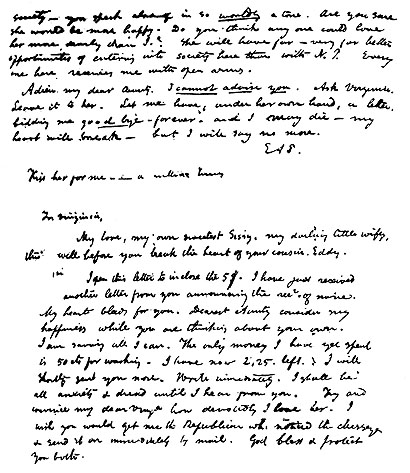 society – you speak always in so worldly a tone. Are you sure
she would be more happy. Do you think any one could love
her more dearly than I? She will have far – very far better
opportunities of entering into society here than with N.P. Every
one here receives me with open arms.
Adieu my dear Aunty. I cannot advise you. Ask Virginia.
Leave it to her. Let me have, under her own hand, a letter,
bidding me good bye – forever – and I may die – my
heart will break – but I will say no more.
EAP.
Kiss her for me – a million times
For Virginia,
My love, my own sweetest Sissy, my darling little wifey,
think well before you break the heart of your cousin. Eddy.
I open this letter to inclose the 5$. I have just received
another letter from you announcing the rect. of mine.
My heart bleeds for you. Dearest Aunty consider my
happiness while you are thinking about your own.
I am saving all I can. The only money I have yet spent
is 50 cts for washing. I have now 2,25. left. I will
shortly send you more. Write immediately. I shall be
all anxiety & dread until I hear from you. Try and
convince my dear Virga. how devotedly I love her. I
wish you would get me the Republican wh. noticed the
& send it on immediately by mail. God bless & protect
you both.